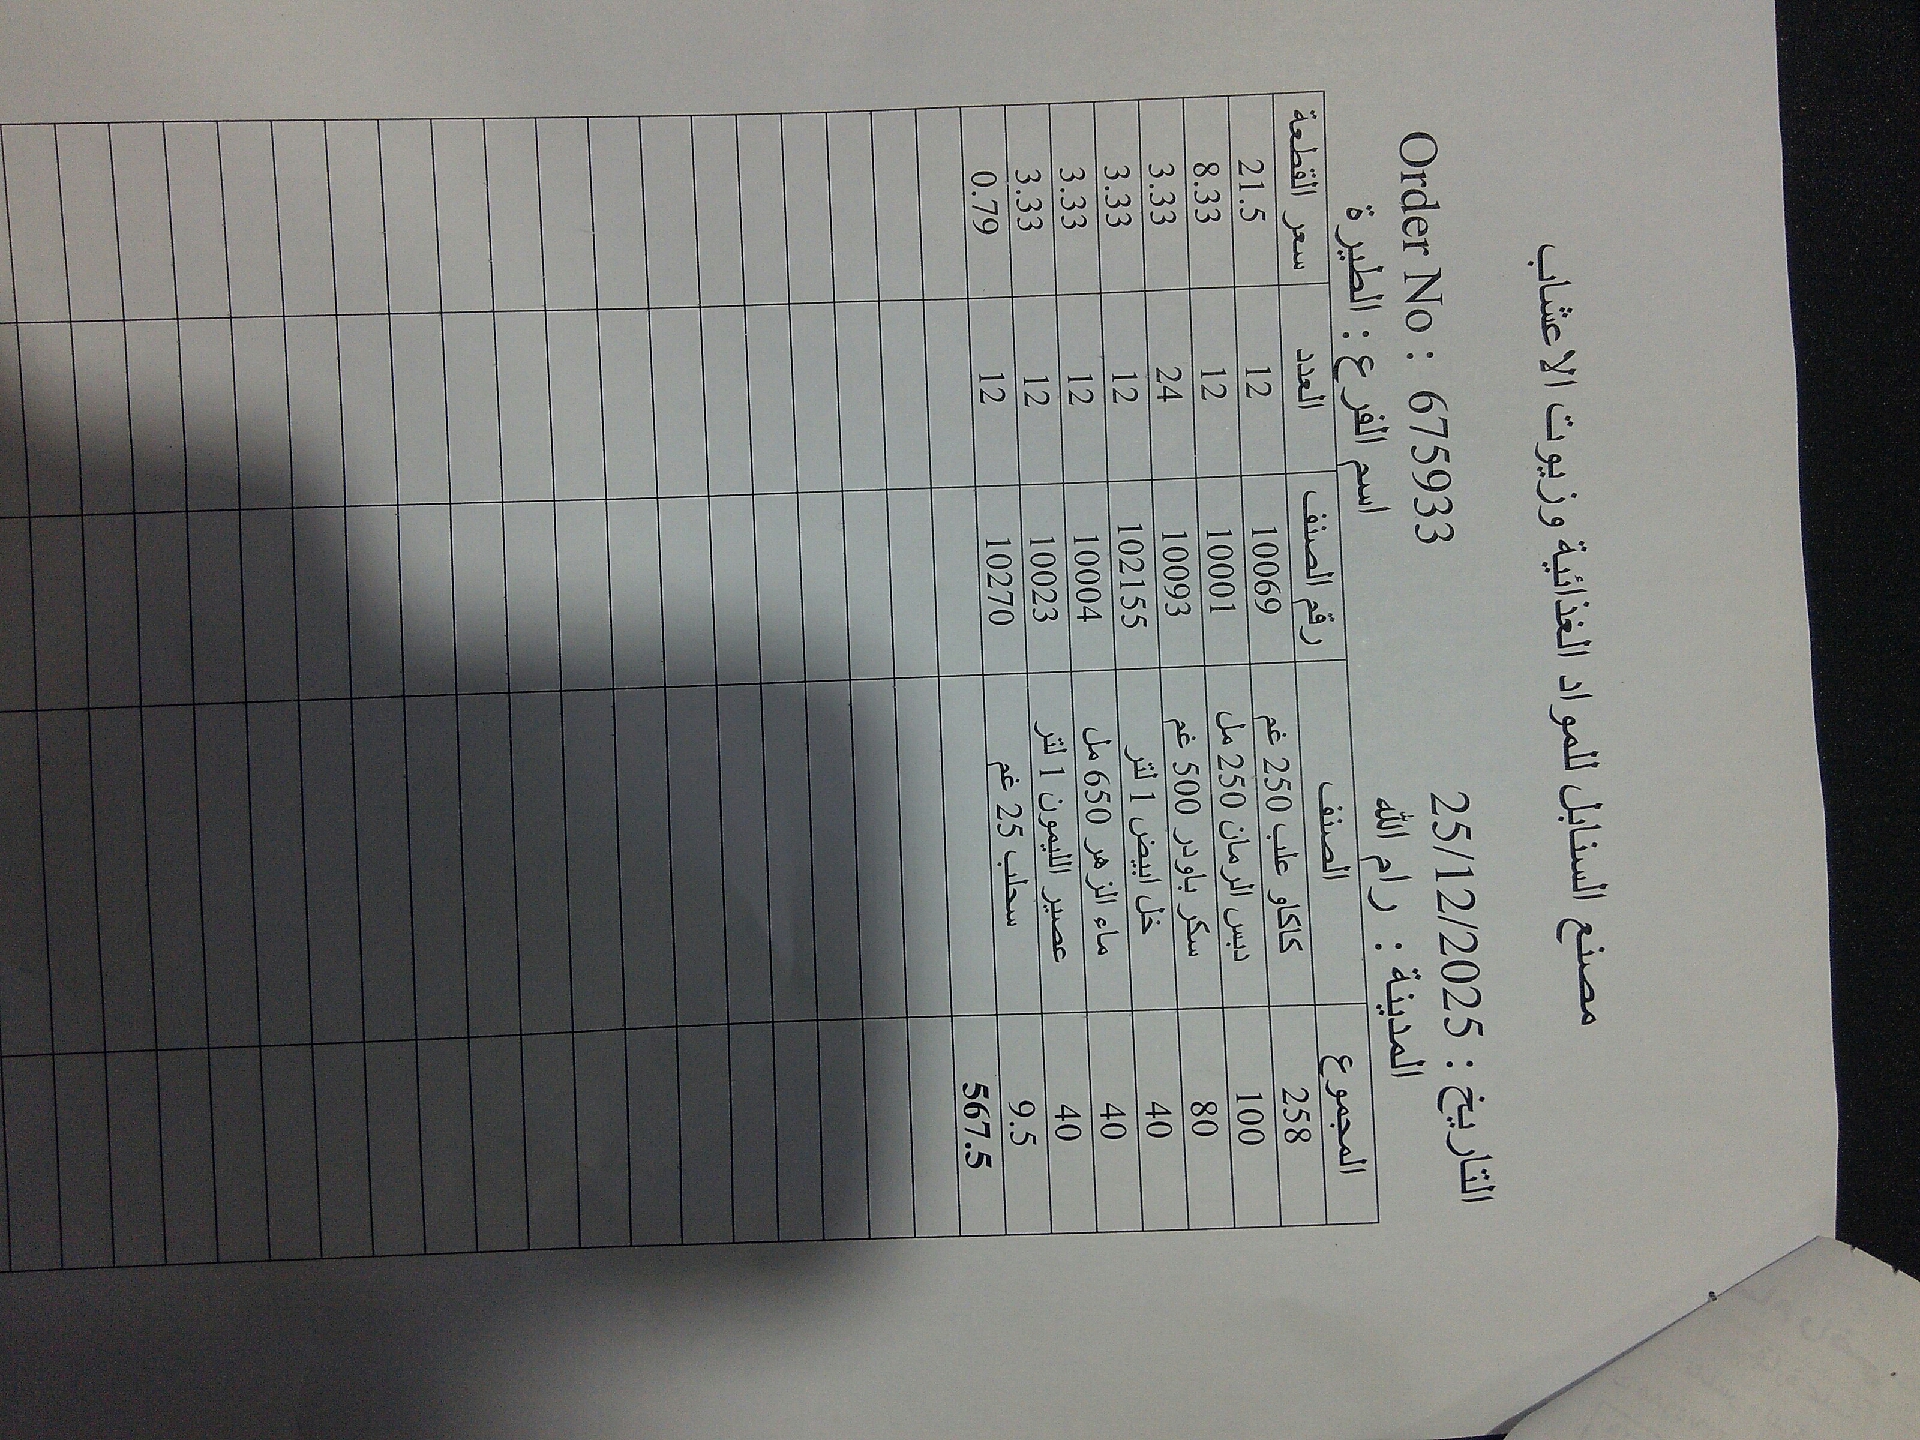 مصنع السنابل للمواد الغذائية وزيوت الاعشاب
التاريخ : 25/12/2025 Order No : 675933
المدينة : رام الله اسم الفرع : الطيرة
المجموع الصنف رقم الصنف العدد سعر القطعة
258 كاكاو علب 250 غم 10069 12 21.5
100 دبس الرمان 250 مل 10001 12 8.33
80 سكر باودر 500 غم 10093 24 3.33
40 خل ابيض 1 لتر 102155 12 3.33
40 ماء الزهر 650 مل 10004 12 3.33
40 عصير الليمون 1 لتر 10023 12 3.33
9.5 سحلب 25 غم 10270 12 0.79
567.5